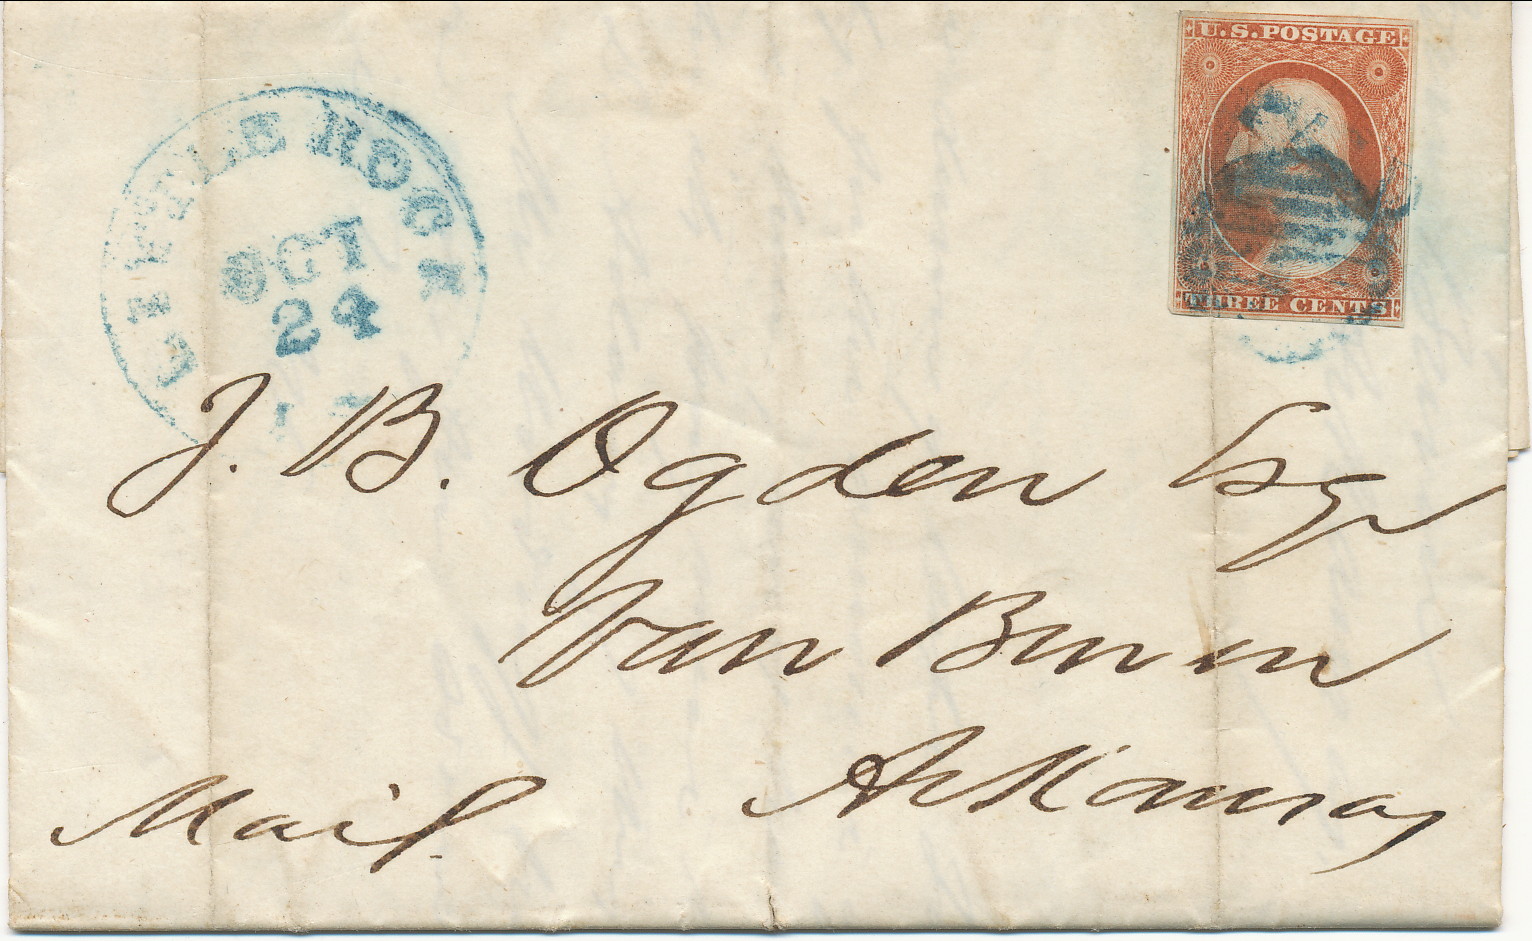 U.S. POSTAGE
THREE CENTS
LITTLE ROCK
OCT
24
J. B. Ogden Esqr
Van Buren
Arkansas
Mail.